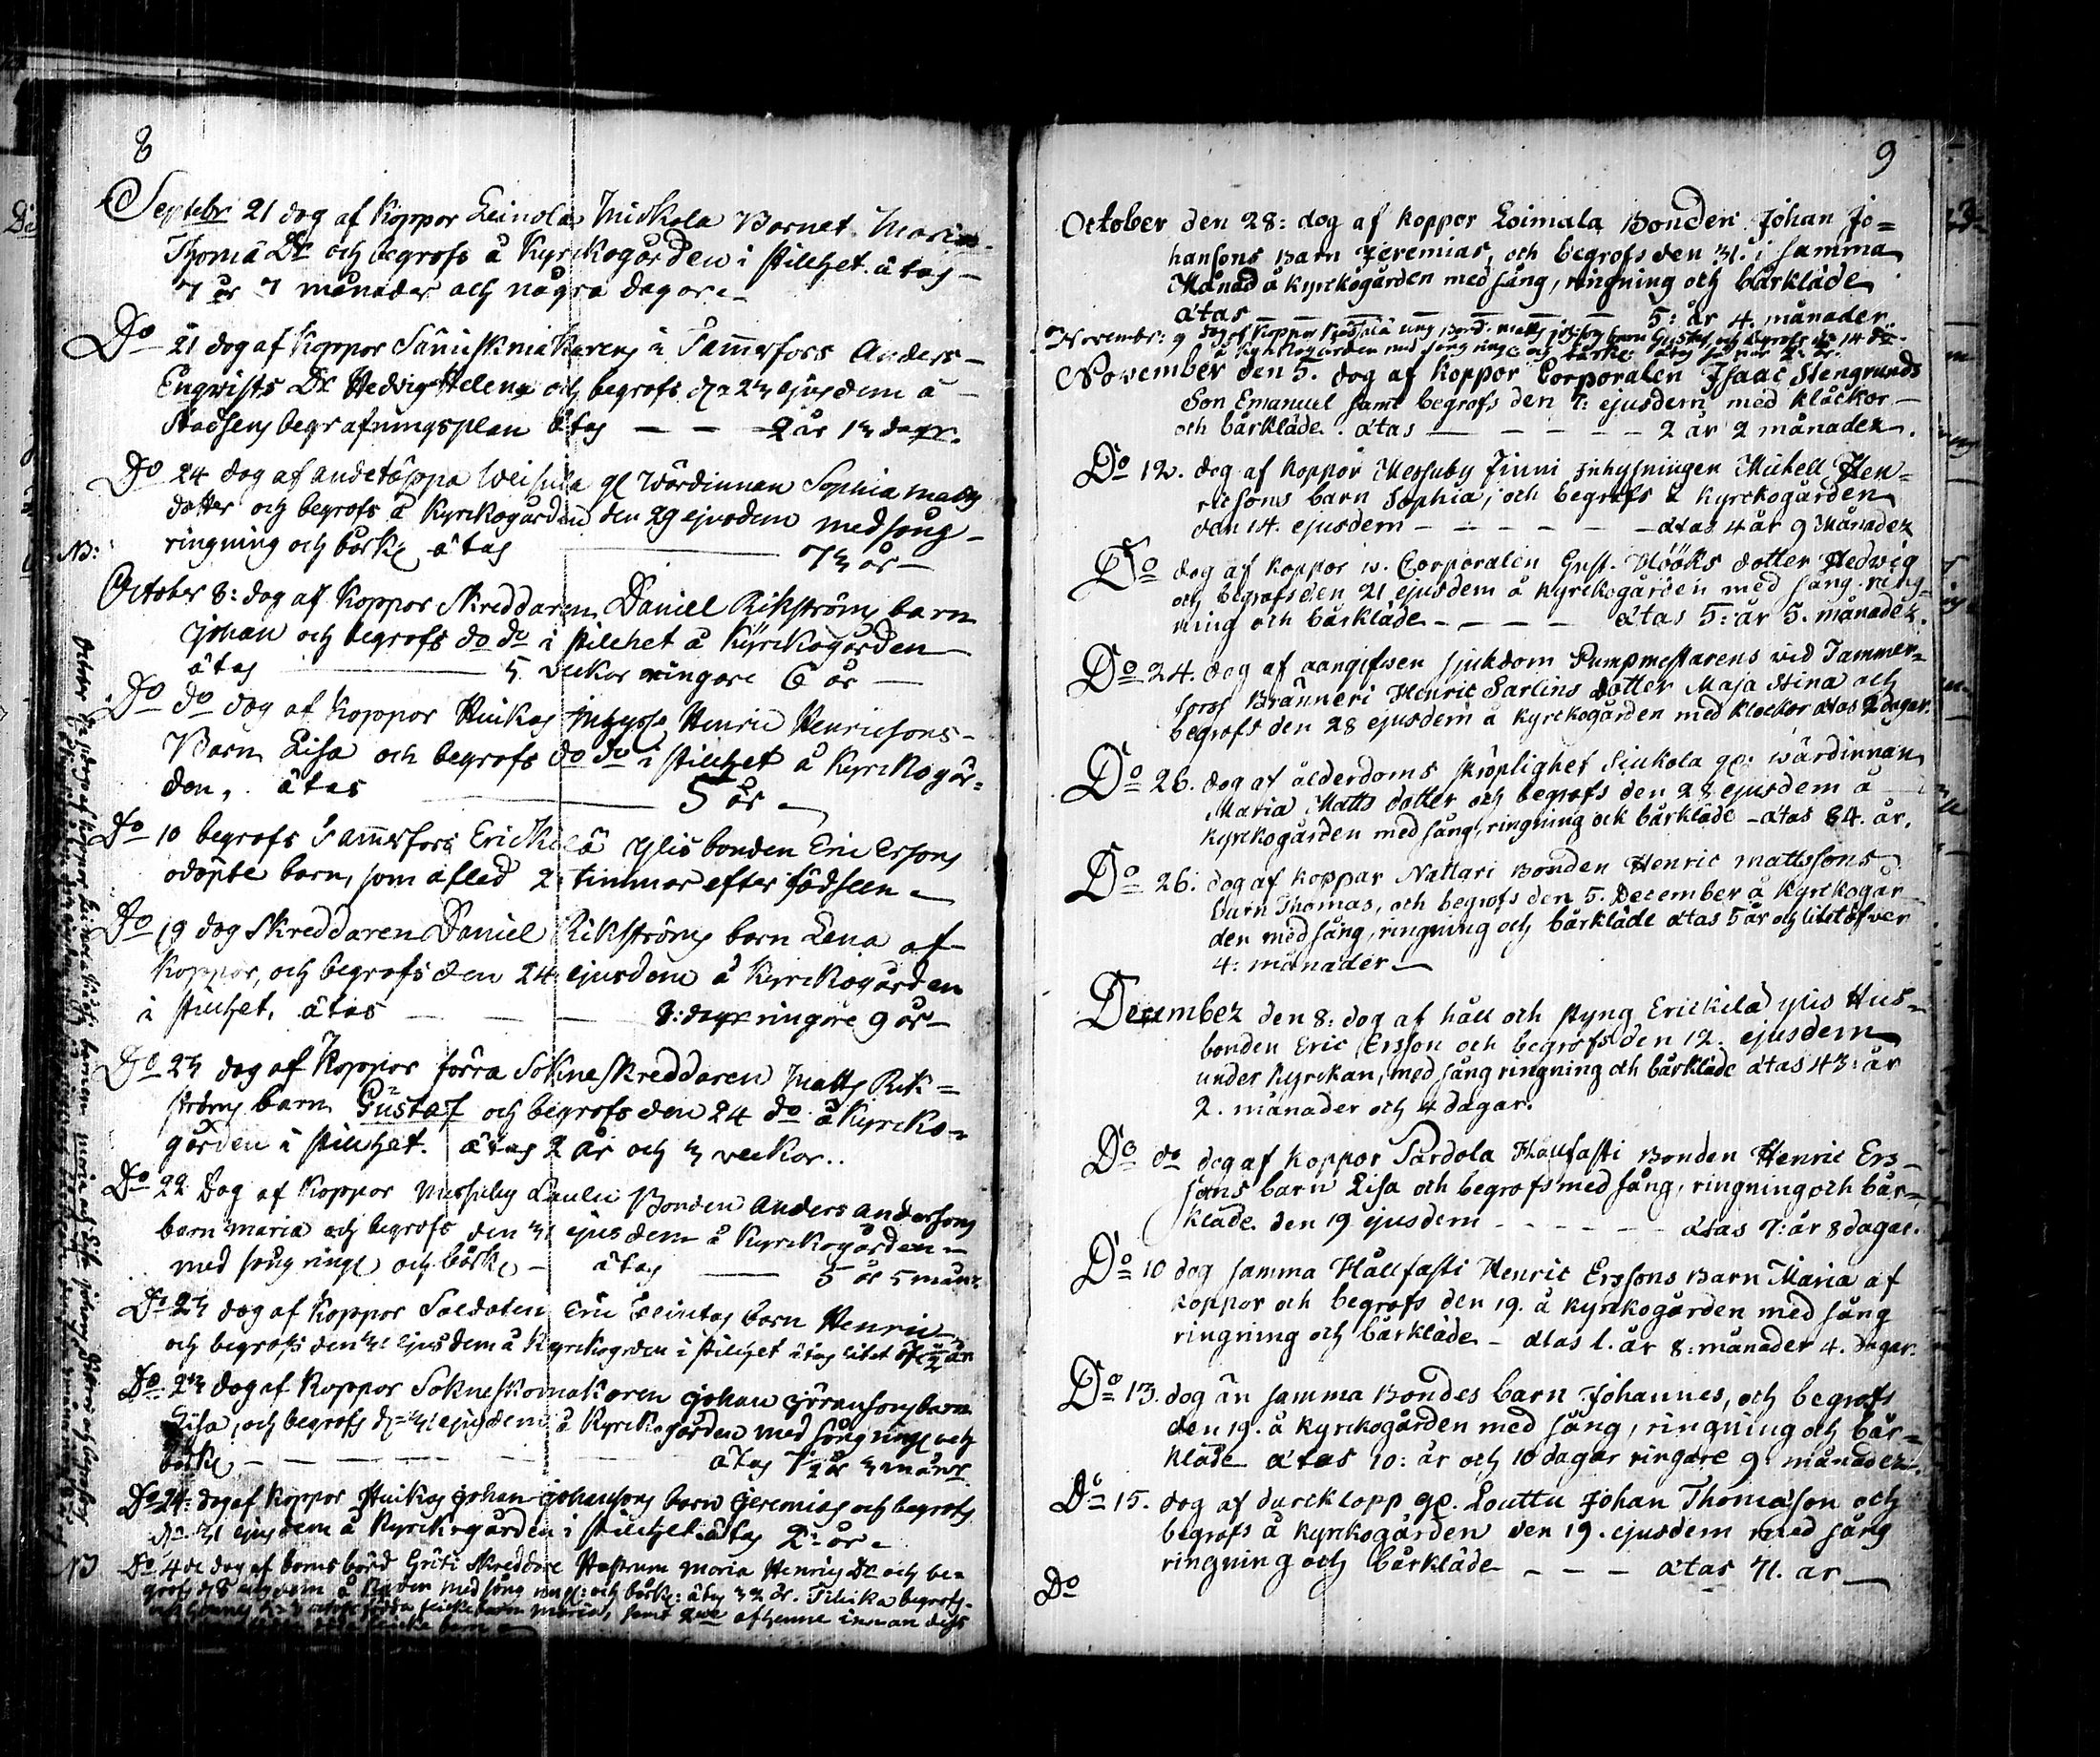 8
Septebr 21 dag af Koppor Leinola Miskola Barnet Maria
Thoma Dr och begrofs å Kyrckogården i stillhet åtog
7 år 7 månader och några dagar
Do 21 dag af Koppor i Tammerfors Anders
Enqvists Dr Hedvig Helena och begrofs dn 23 ejusdem å
Stadsens begrafningsplan åtog — — 2 år 13 dagr.
Do 24 dag af gl Wärdinnan Sophia Matts
dotter och begrofs å Kyrckogården den 29 ejusdem med sång
NB: ringning och bårkl åtog 73 år
October 8: dag af Koppor Skreddaren Daniel Rikströms barn
Johan och begrofs do do i stillhet å Kyrckogården
åtog 5 veckor ringare 6 år
Do do dag af Koppor Huikas Inhyses Henric Henricsons
Barn Lisa och begrofs do do i stillhet å Kyrckogår=
den, åtas 5 år
Do 10 begrofs Tammerfors Erickilä Ylis bonden Eric Ersons
odöpte barn, som afled 2 timmar efter födseln
Do 19 dag Skreddaren Daniel Rikströms barn Lena af
Koppor, och begrofs den 24 ejusdem å Kyrckogården
i stillhet, åtas — — 8: dagr ringare 9 år
Do 23 dag af Koppor förra Sokneskreddaren Matts Rik=
ströms barn Gustaf och begrofs den 24 do å Kyrcko=
gården i stillhet. åtas 2 år och 3 veckor..
Do 22 Dag af Koppor Messuby Laulu Bonden Anders Andersons
barn Maria och begrofs den 31 ejusdem å Kyrckogården
med sång ringn och bårkl åtog — 5 år 5 mån
Do 23 dag af Koppor Soldaten Eric Flintas barn Henric
och begrofs den 31 ejusdem å Kyrckogården i stillhet åtog litet öfver 1/2 år
Do 23 dag af Koppor Sokneskomakaren Johan Göransons barn
Lisa, och begrofs dn 31 ejusdem å Kyrckogården med sång ringn och
bårkl — — — åtog 7 1/2 år 3 månr
Do 24: dag af Koppor Huikas Johan Johansons barn Jeremias och begrofs
dn 31 ejusdem å Kyrckogården i stillhet åtog 2: år
NB Do 4de dag af barnsbörd Skreddare Maria Henrics Dr och be=
grofs d 8 ejusdem å med sång ringn: och bårkl: åtog 32 år. begrofs
9
October den 28: dag af koppor Loimala Bonden Johan Jo=
hansons Barn Jeremias, och begrofs den 31. i samma
Månad å kyrckogården med sång, ringning och bårkläde
åtas — — — — — 5: år 4 månader.
Novembr: 9 dag af Koppor barn Gustaf och begrofs dn 14 do
å Kyrckogården med sång ringn: och bårkl:
November den 5. dag af koppor Corporalen Isaac Stengrunds
Son Emanuel samt begrofs den 7: ejusdem med klåckor
och bårkläde. åtas — — — — 2 år 2 månader.
Do 12. dag af koppor Messuby Jinni inhysningen Mickell Hen=
ricsons barn Sophia, och begrofs å kyrckogården
den 14. ejusdem — — — — — åtas 4 år 9 Månader
Do dag af koppor w. Corporalen Gust. Hööks dotter Hedwig
och begrofs den 21 ejusdem å kyrckogården med sång ring=
ning och bårkläde — — — — åtas 5: år 5. månader.
Do 24. dag af oangifwen sjukdom Pumpmestarens wid Tammer=
fors Bränneri Henric Sarlins dotter Maja Stina och
begrofs den 28 ejusdem å kyrckogården med klockor åtas 2 dagar.
Do 26. dag af ålderdoms skröplighet Siukola gl: wärdinnan
Maria Matts dotter och begrofs den 28 ejusdem å
kyrkogården med sång, ringning och bårkläde — åtas 84. år.
Do 26: dag af koppar Nattari Bonden Henric Mattssons
barn Thomas, och begrofs den 5. December å kyrckogår
den med sång, ringning och bårkläde åtas 5 år och litet öfver
4: månader
December den 8: dag af håll och styng Erickilä ylis Hus=
bonden Eric Ersson och begrofs den 12. ejusdem
under kyrckan, med sång ringning och bårkläde åtas 43: år
2. månader och 4 dagar.
Do do dag af koppor Pardola Hållfasti Bonden Henric Ers=
sons barn Lisa och begrofs med sång, ringning och bår=
kläde. den 19 ejusdem — — — — — åtas 7: år 8 dagar.
Do 10 dag samma Hållfasti Henric Erssons Barn Maria af
koppor och begrofs den 19. å kyrkogården med sång
ringning och bårkläde — åtas 1. år 8: månader 4. dagar.
Do 13. dag än samma Bondes barn Johannes, och begrofs
den 19. å kyrckogården med sång, ringning och bår=
kläde åtas 10: år och 10 dagar ringare 9. månader.
Do 15. dag af durcklopp gl. Louttu Johan Thomasson och
begrofs å kyrkogården den 19. ejusdem med sång
ringning och bårkläde — — — åtas 71. år
Do